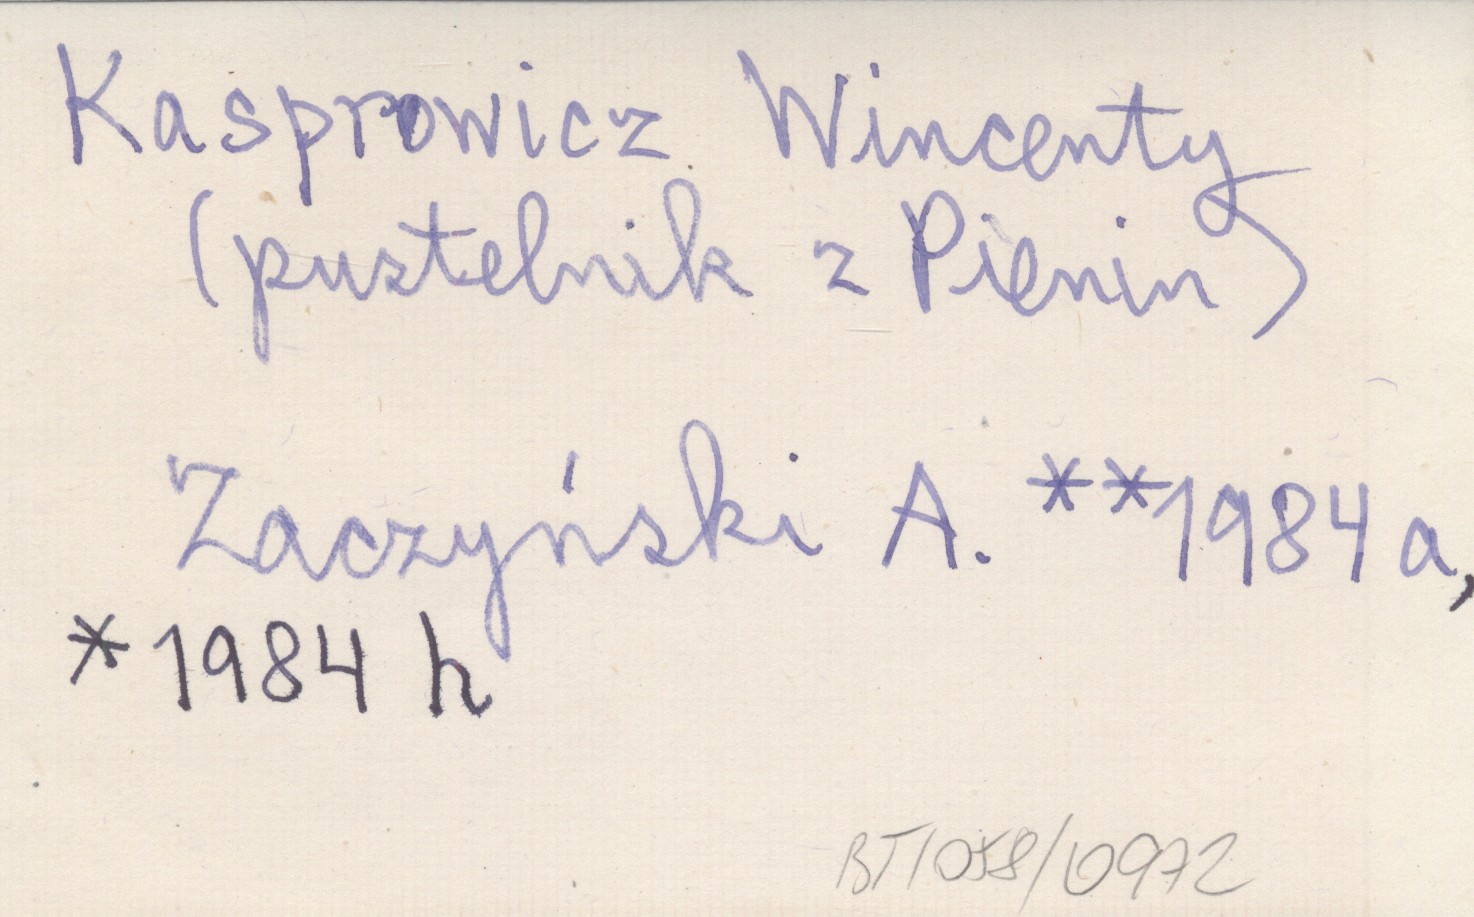 Kasprowicz Wincenty
(pustelnik z Pienin)
Zaczyński A. **1984 a,
*1984 h
BT/058/0972